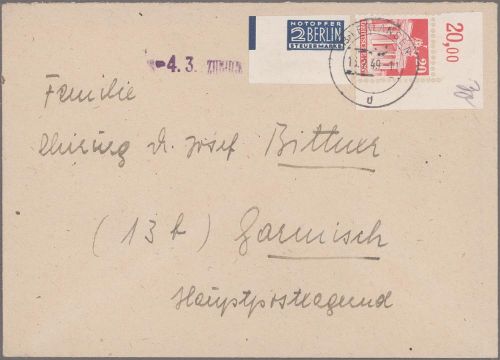 NOTOPFER
2 BERLIN
STEUERMARKE
20,00
20
-4. 3.
49.-11
d
Familie
Chirurg dr. Josef Bittner
(13 b) Garmisch
Hauptpostlagernd